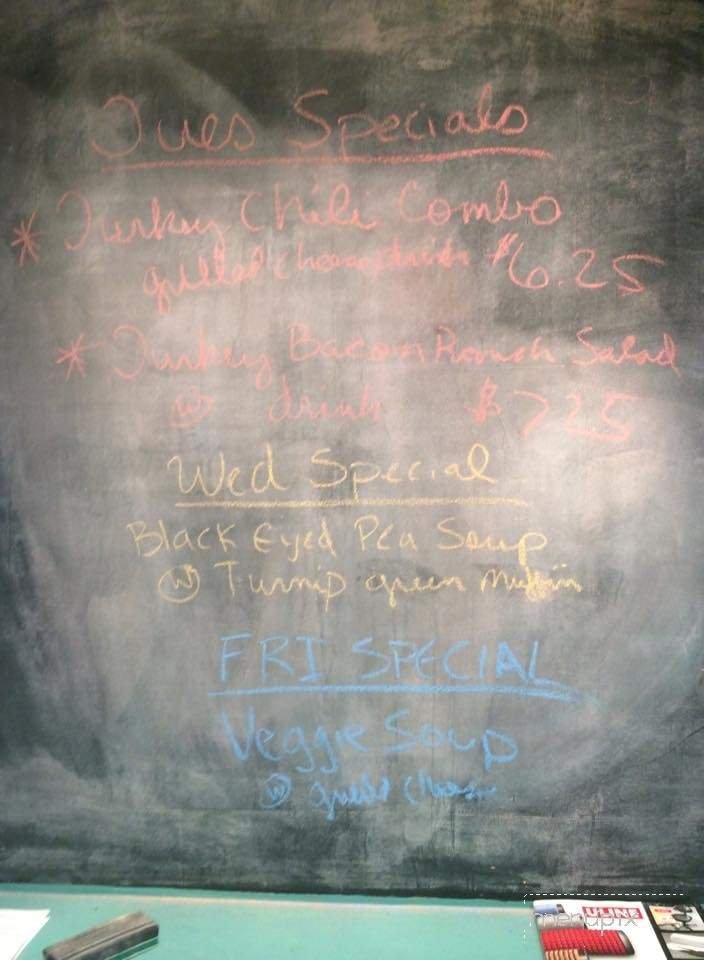 Tues Specials
* Turkey Chili Combo
grilled cheese drink $6.25
* Turkey Bacon Ranch Salad
w drink $7.25
Wed Special
Black Eyed Pea Soup
w Turnip green muffin
FRI SPECIAL
Veggie Soup
w grilled cheese
ULINE
menupix